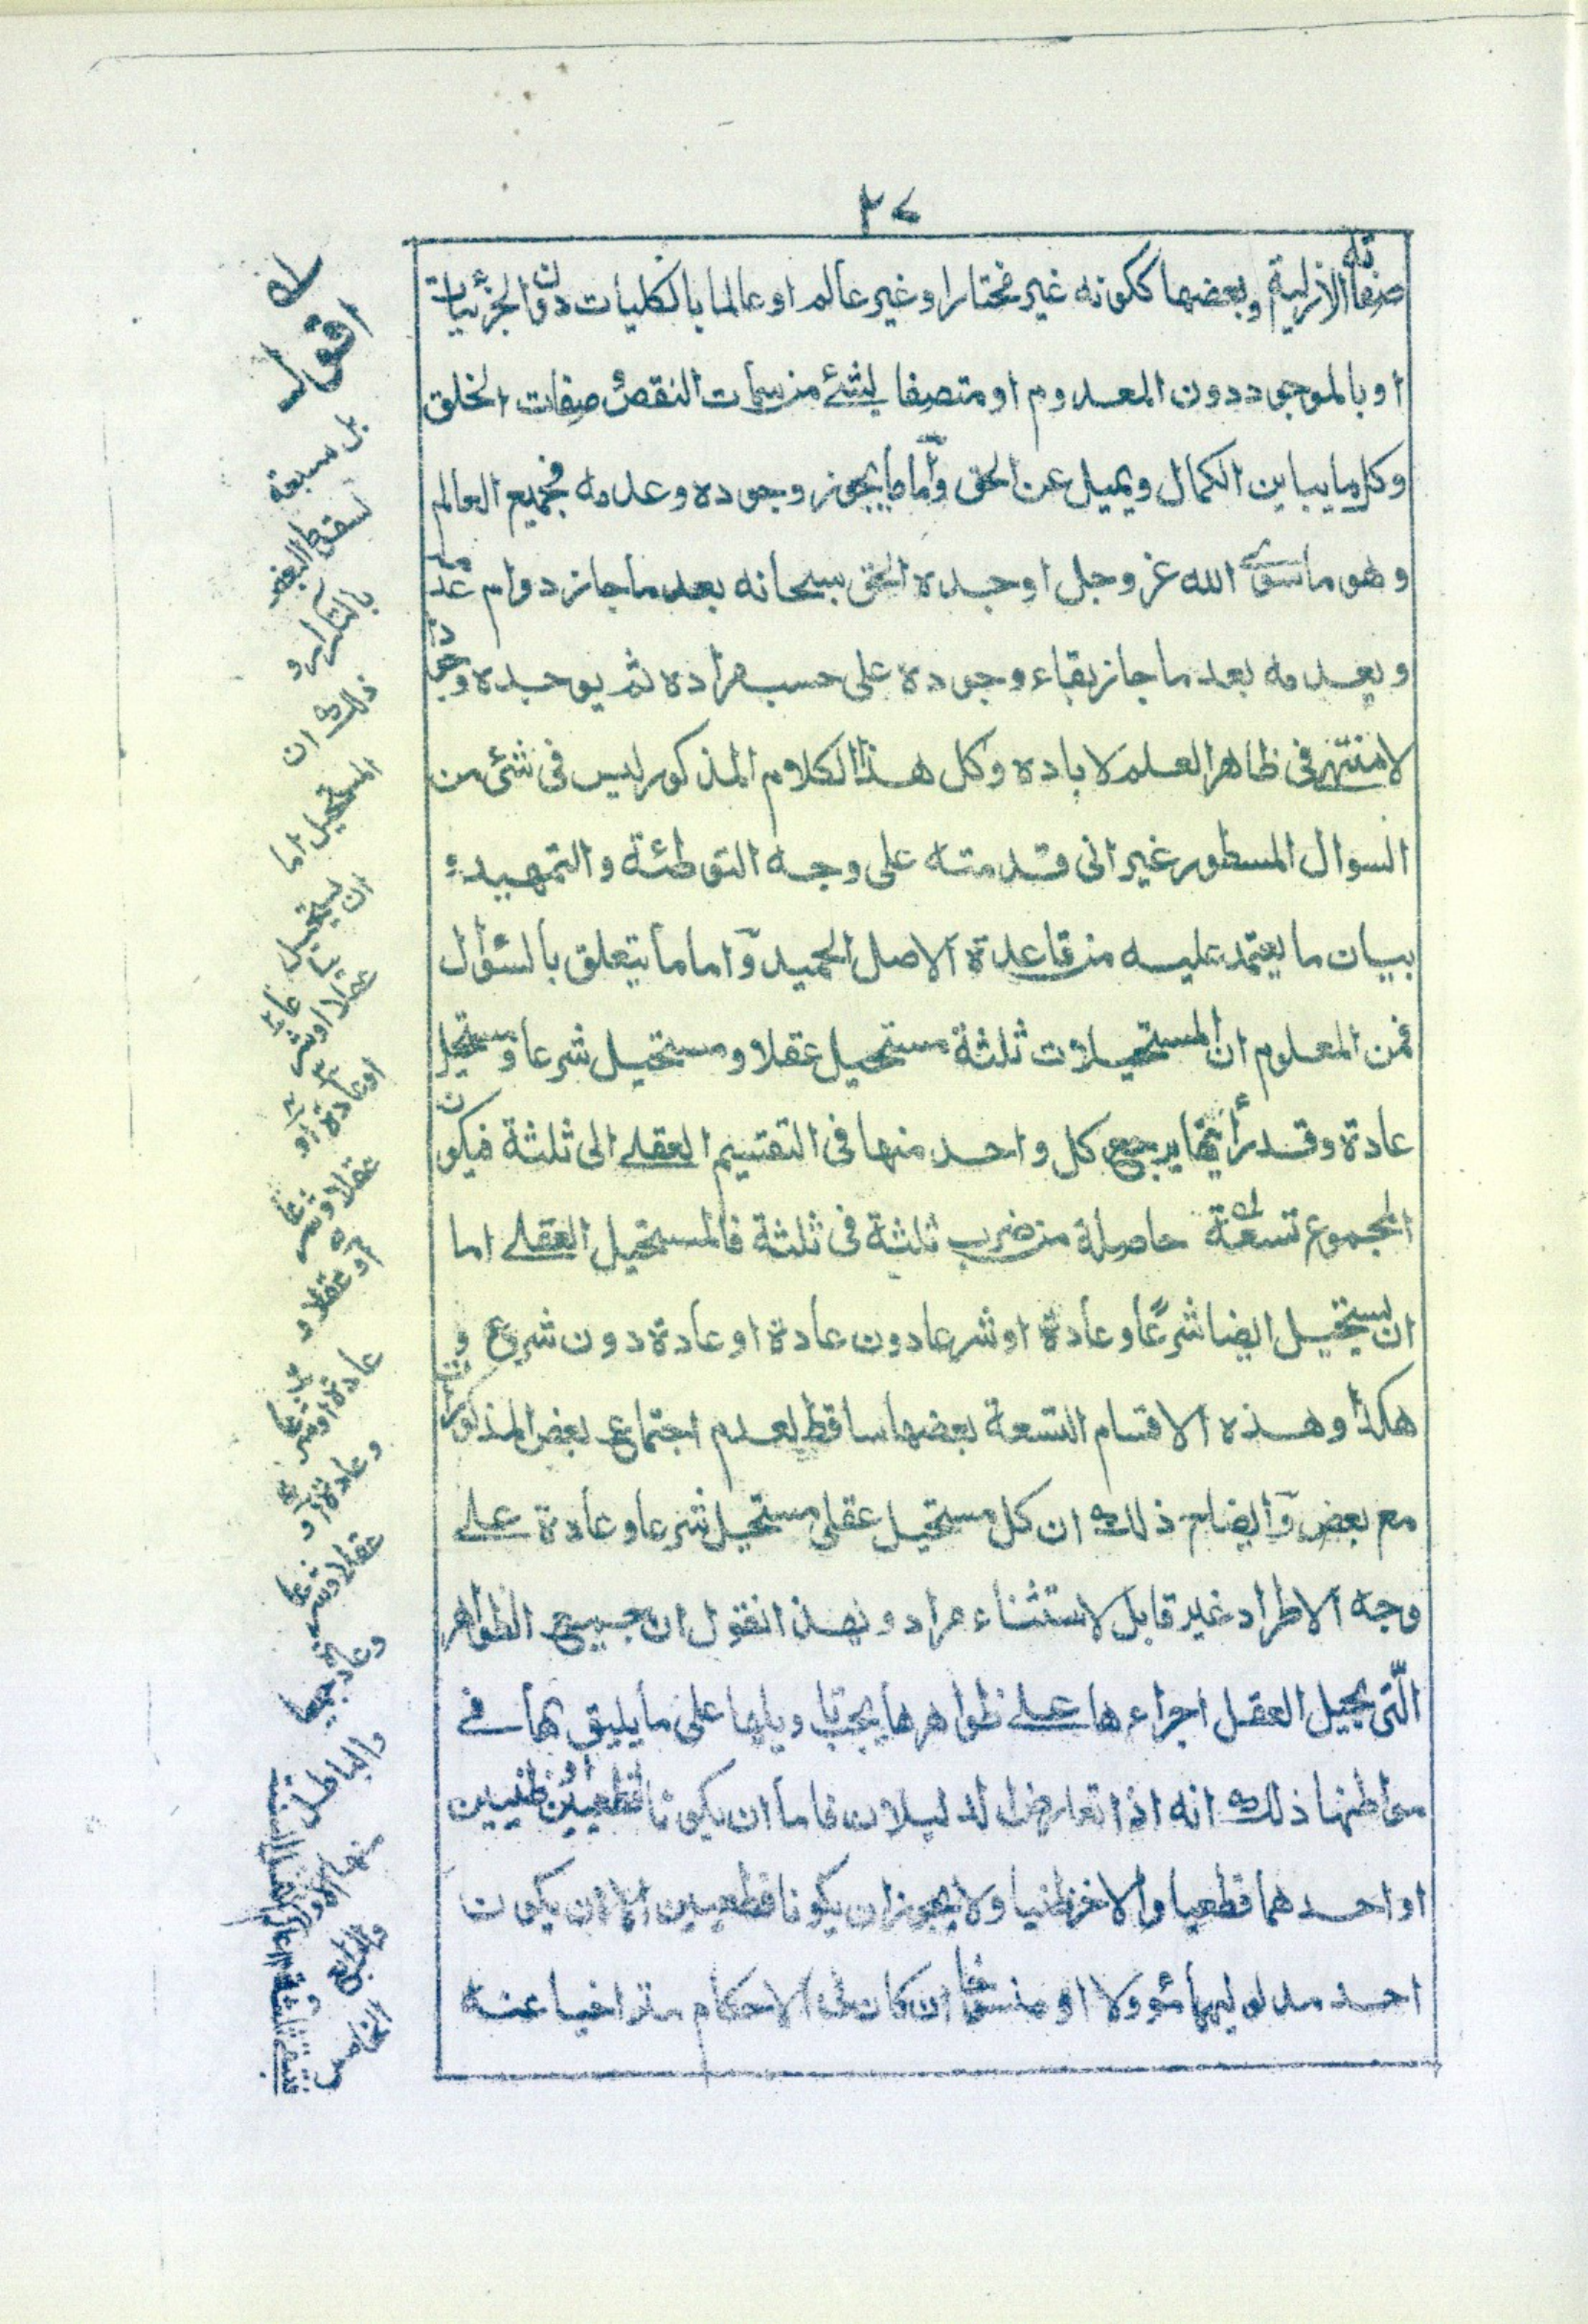 ٢٧
صفاته الازلية وبعضها ككونه غير مختارا وغير عالم او عالما بالكليات دون الجزئيات
او بالموجود دون المعدوم او متصفا بشئ من سمات النقص و صفات الخلق
وكل ما يباين الكمال ويميل عن الحق وأما ما يجوز وجوده وعدمه فجميع العالم
وهو ما سوى الله عز وجل اوجده الحق سبحانه بعد ما جاز دوام عدمه
ويعدمه بعد ما جاز بقاء وجوده على حسب مراده ثم يوجده وجودا
لا منتهى في ظاهر العلم لاباده وكل هذا الكلام المذكور ليس في شئ من
السوال المسطور غير انى قدمته على وجه التوطئة والتمهيد
ببيان ما يعتمد عليه من قاعدة الاصل الحميد وأما ما يتعلق بالسؤال
فمن المعلوم ان المستحيلات ثلثة مستحيل عقلا ومستحيل شرعا ومستحيل
عادة وقد رأيتها يرجع كل واحد منها فى التقسيم العقلے الى ثلثة فيكون
المجموع تسعة له حاصلة من ضرب ثلثة فى ثلثة فالمستحيل العقلے اما
ان يستحيل ايضا شرعًا وعادة او شرعا دون عادة او عادة دون شرع و
هكذا وهذه الاقسام التسعة بعضها ساقط لعدم اجتماع بعض المذكورات
مع بعض وأيضاح ذلك ان كل مستحيل عقلى مستحيل شرعا وعادة علے
وجه الاطراد غير قابل لاستثناء مراد وبهذا نقول ان جميع الظواهر
الّتى يحيل العقل اجراءها علے ظواهرها يجب تاويلها على ما يليق بها فے
مواطنها ذلك انه اذا تعارض الدليلان فاما ان يكونا قطعيين او ظنيين
او احدهما قطعيا والاخر ظنيا ولا يجوز ان يكونا قطعيين الا ان يكون
احد مدلوليهما مؤولا او منسوخا ان كان فى الاحكام متراخيا عنه
له اقول
بل سبعة
لسقوط البعض
بالتكرار و
ذلك ان
المستحيل اما
ان يستحيل
عقلا او شرعا
او عادة او
عقلا و شرعا
او عقلا و
عادة او شرعا
وعادة او
عقلا وشرعا
وعادة جميعا
والباطل
منها